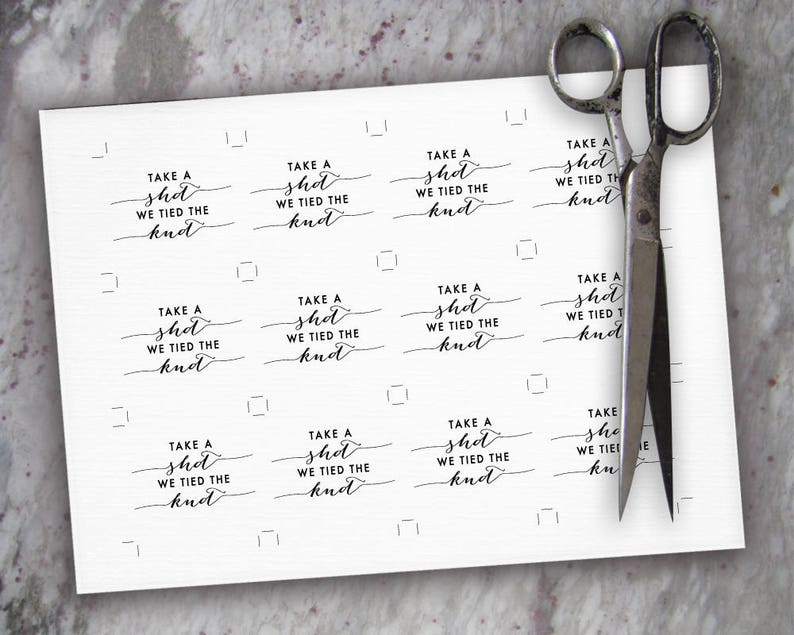 TAKE A
shot
WE TIED THE
knot
TAKE A
shot
WE TIED THE
knot
TAKE A
shot
WE TIED THE
knot
TAKE A
shot
WE TIED THE
knot
TAKE A
shot
WE TIED THE
knot
TAKE A
shot
WE TIED THE
knot
TAKE A
shot
WE TIED THE
knot
TAKE A
shot
WE TIED THE
knot
TAKE A
shot
WE TIED THE
knot
TAKE A
shot
WE TIED THE
knot
TAKE A
shot
WE TIED THE
knot
TAKE A
shot
WE TIED THE
knot